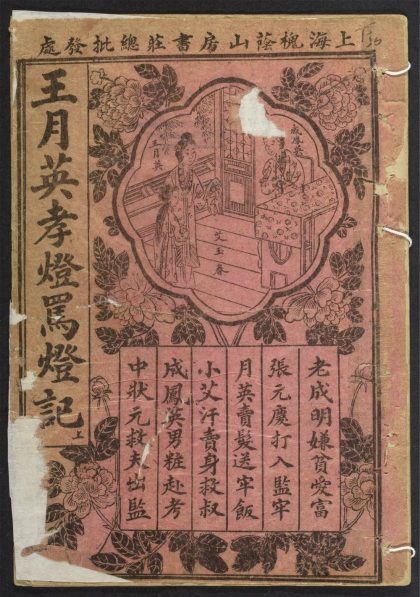 上海槐蔭山房書莊總批發處
王月英孝燈罵燈記
上
王月英
艾玉春
老成明嫌貧愛富
張元慶打入監牢
月英賣髮送牢飯
小艾汗賣身救叔
成鳳英男粧赴考
中狀元救夫出監